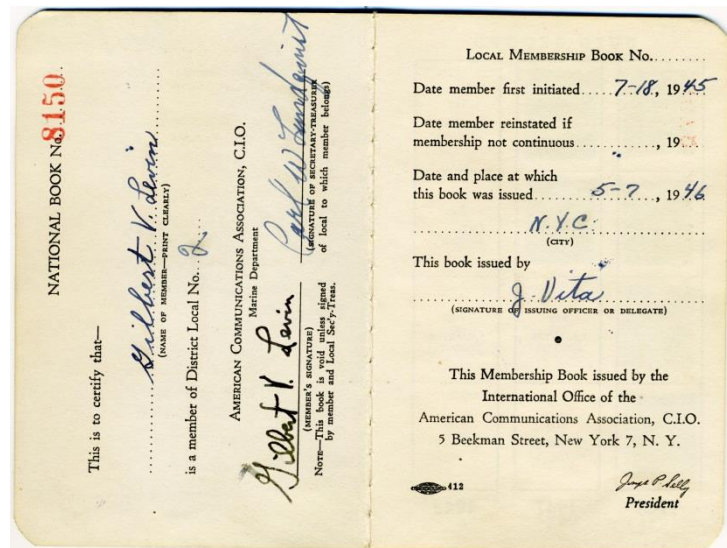 NATIONAL BOOK No. 8150
This is to certify that—
Gilbert V. Levin
(NAME OF MEMBER—PRINT CLEARLY)
is a member of District Local No. 2
AMERICAN COMMUNICATIONS ASSOCIATION, C.I.O.
Marine Department
Gilbert V. Levin
(MEMBER'S SIGNATURE)
NOTE—This book is void unless signed
by member and Local Sec'y-Treas.
Carl W Lundquist
(SIGNATURE OF SECRETARY-TREASURER
of local to which member belongs)
LOCAL MEMBERSHIP BOOK No.........
Date member first initiated.....7-18, 1945
Date member reinstated if
membership not continuous............, 19
Date and place at which
this book was issued........5-7, 1946
N.Y.C.
(CITY)
This book issued by
J. Vita
(SIGNATURE OF ISSUING OFFICER OR DELEGATE)
This Membership Book issued by the
International Office of the
American Communications Association, C.I.O.
5 Beekman Street, New York 7, N. Y.
412
Joseph P. Selly
President